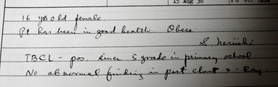 16 yr old female
Pt has been in good health. Obese
TBCL - pos. since 5 grade in primary school
No abnormal finding in past chest x-Ray